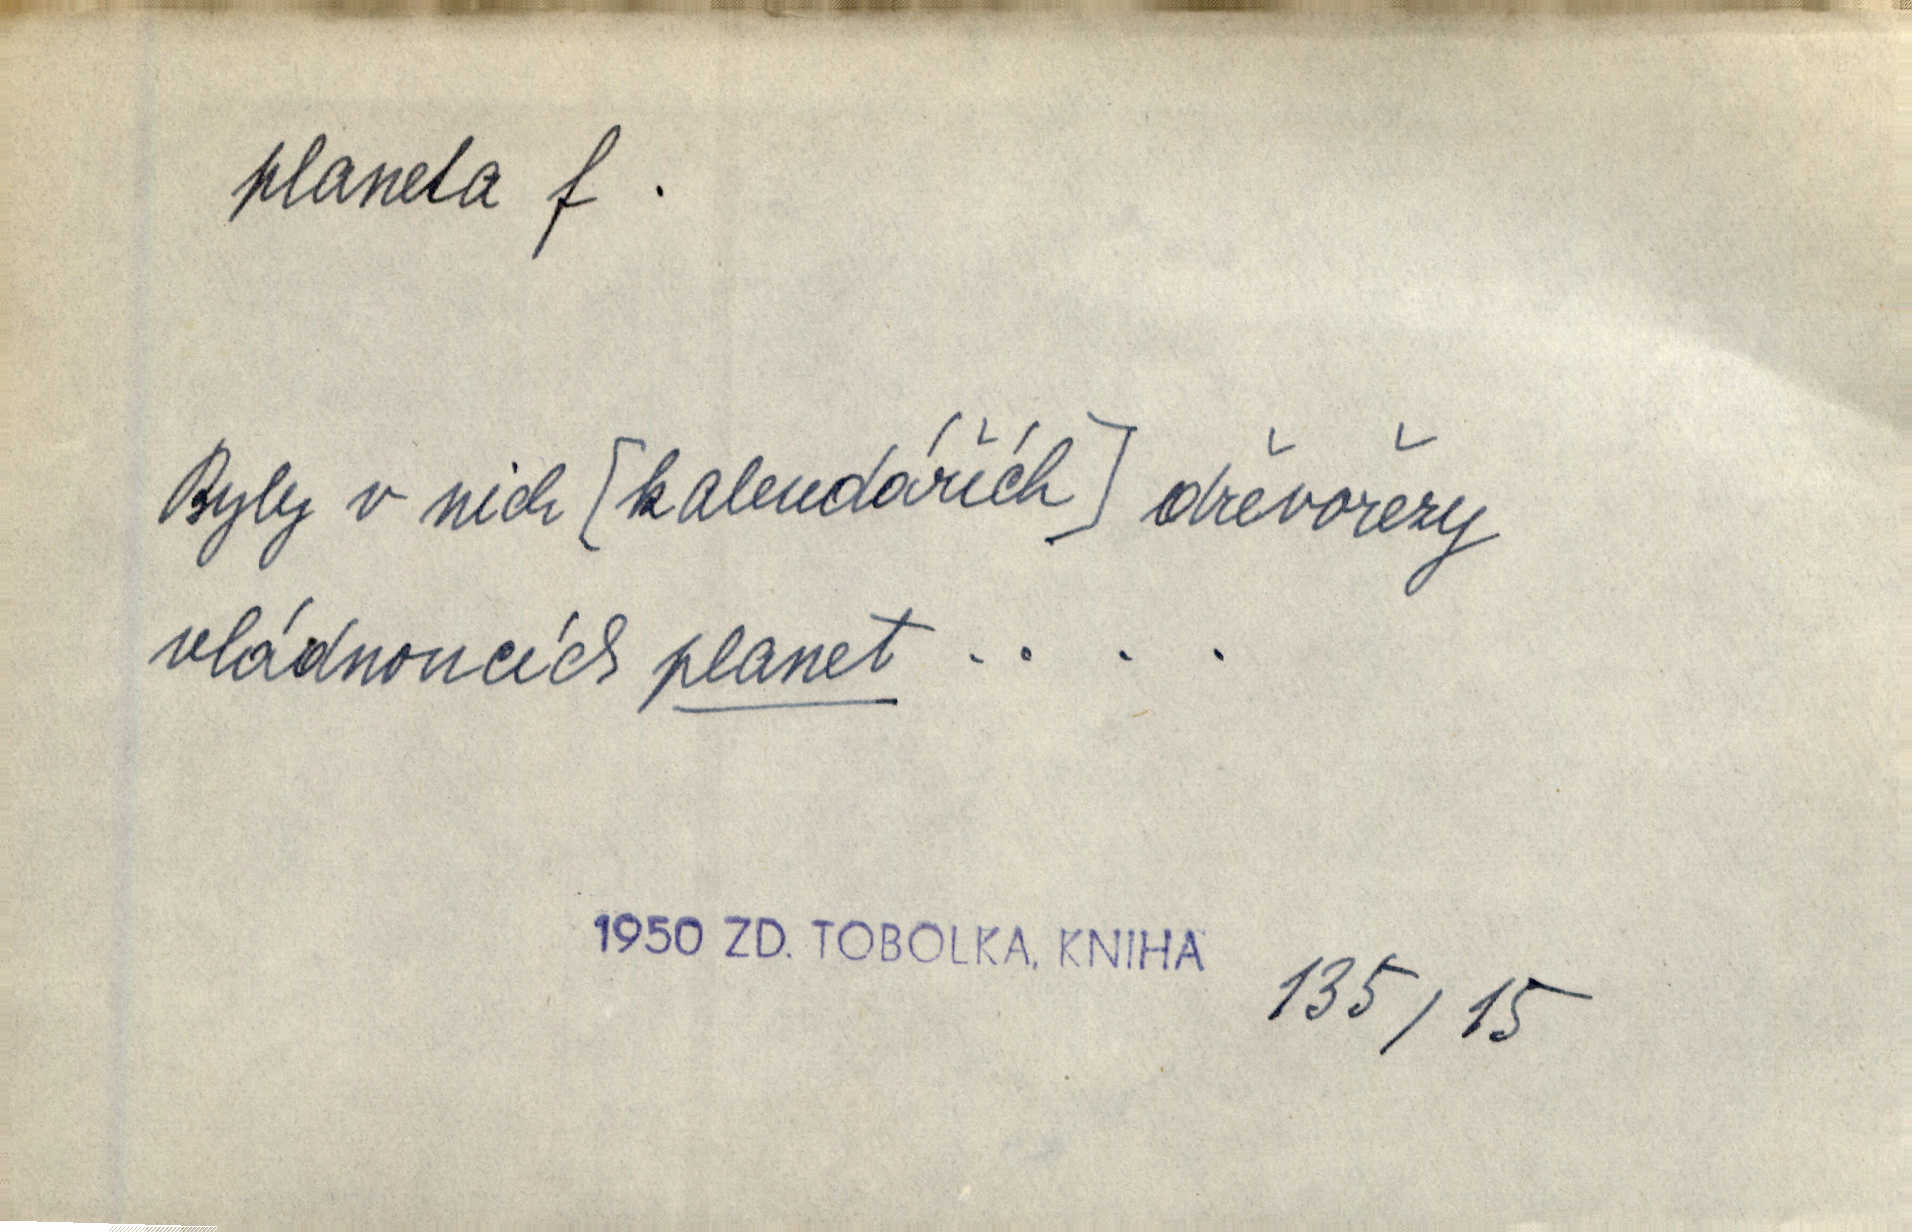 planeta f.
Byly v nich [kalendářích] dřevořezy
vládnoucích planet . . . .
1950 ZD. TOBOLKA, KNIHA
135/15